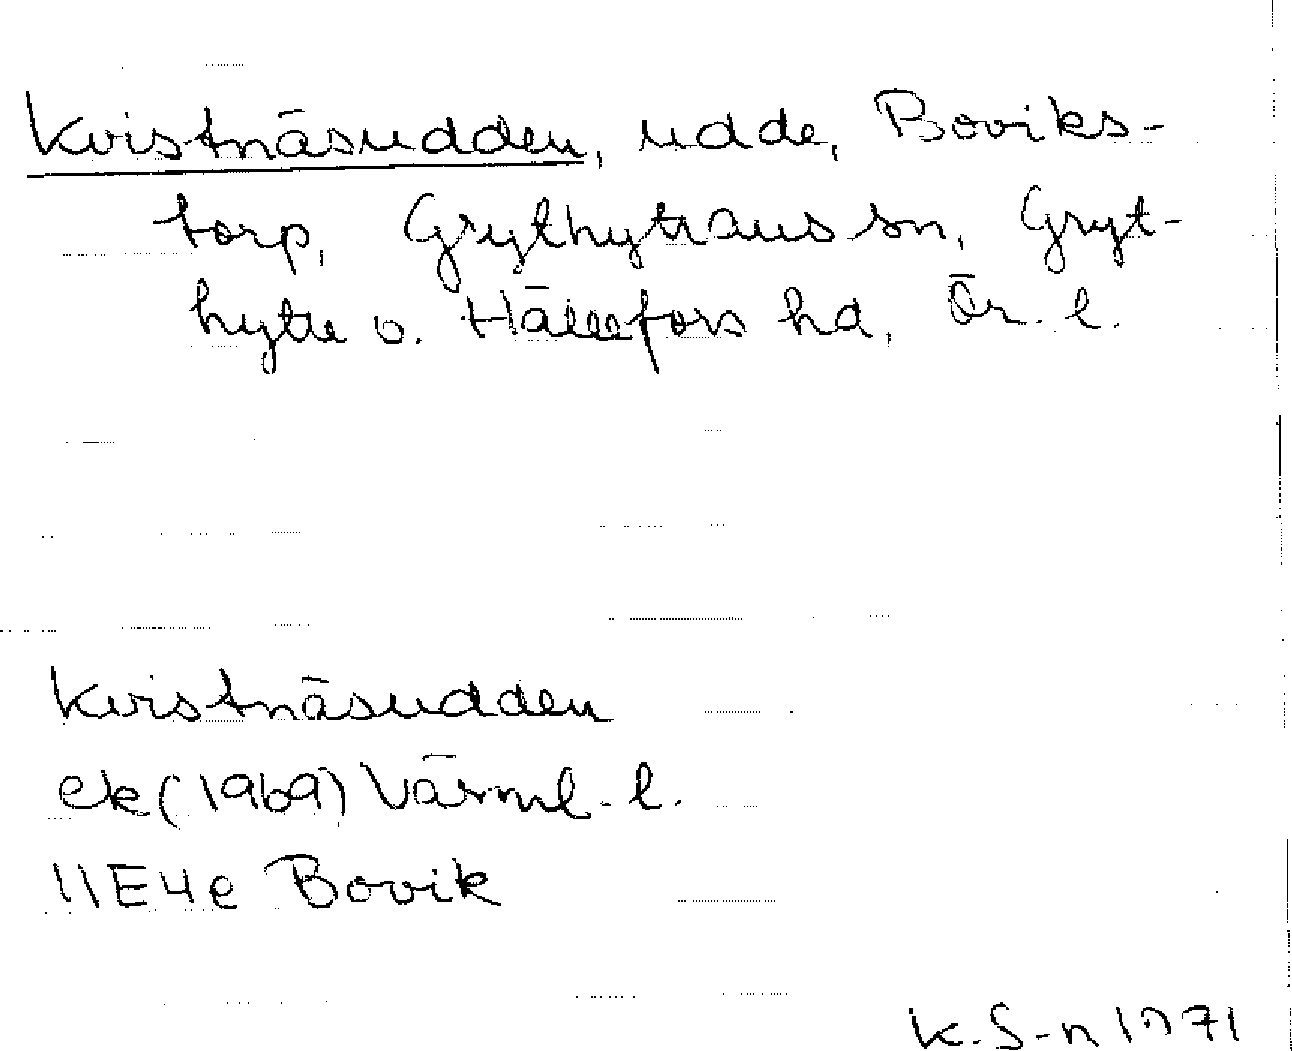 Kvistnäsudden, udde, Boviks-
torp, Grythyttans sn, Gryt-
hytte o. Hällefors hd, Ör. l.
Kvistnäsudden
ek (1969) Värml. l.
11E4e Bovik
K. S-n 1971